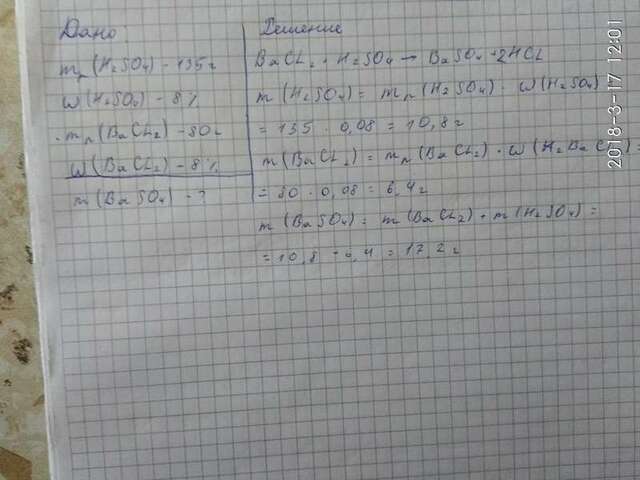 Дано
mр(H2SO4) - 135 г
W(H2SO4) - 8%
mр(BaCL2) - 80 г
W(BaCL2) - 8%
m(BaSO4) - ?
Решение
BaCL2 + H2SO4 → BaSO4 + 2HCL
m(H2SO4) = mр(H2SO4) · W(H2SO4)
= 135 · 0,08 = 10,8 г
m(BaCL2) = mр(BaCL2) · W(H2BaCL2) =
= 80 · 0,08 = 6,4 г
m(BaSO4) = m(BaCL2) + m(H2SO4) =
= 10,8 + 6,4 = 17,2 г
2018-3-17 12:01